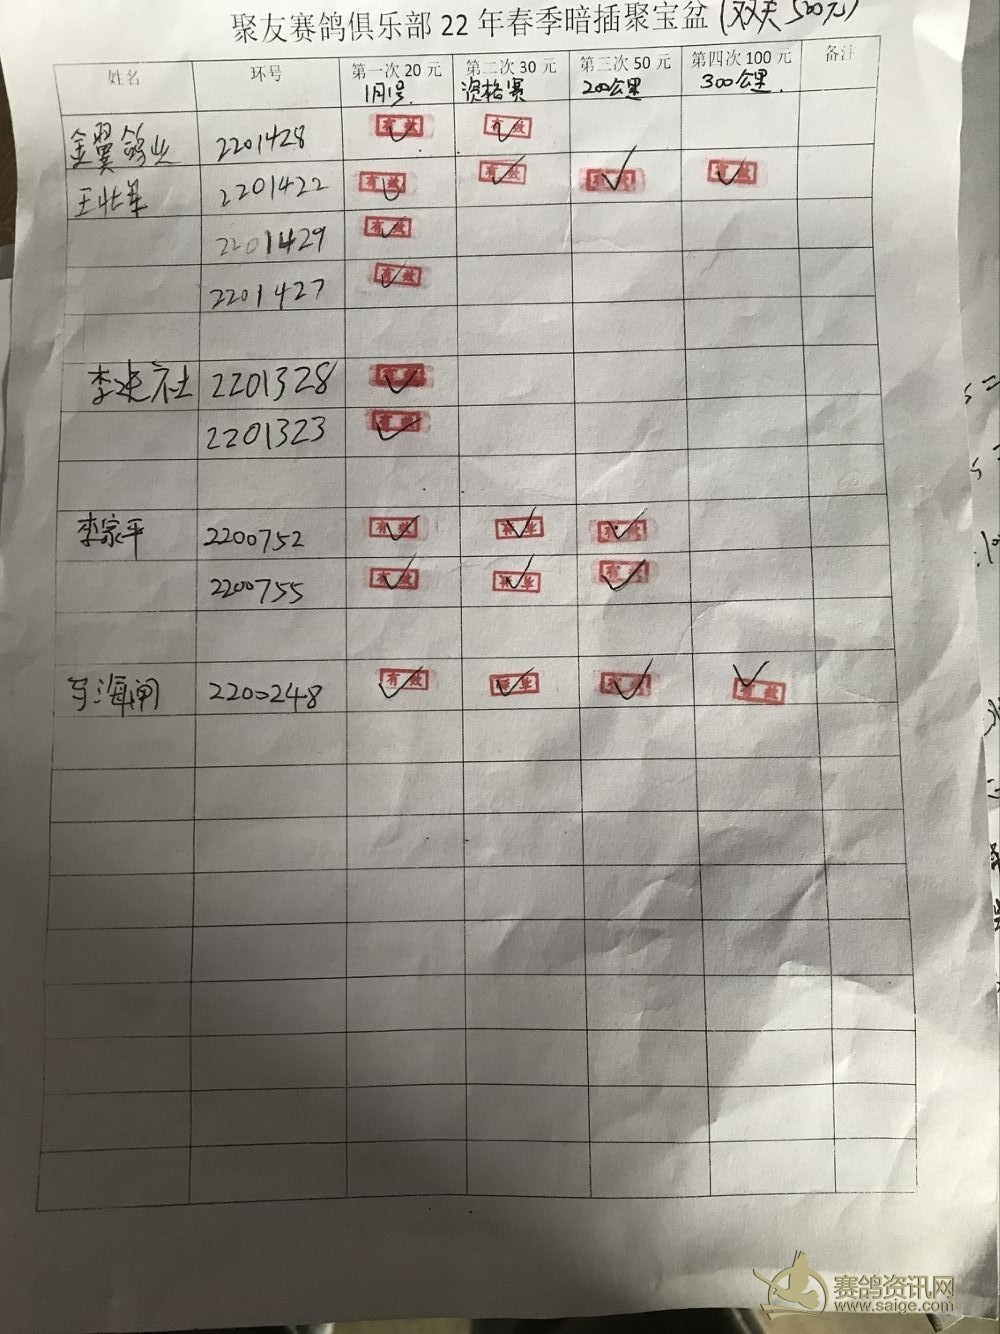 聚友赛鸽俱乐部 22 年春季暗插聚宝盆 (双关 500元)
姓名 环号 第一次 20 元 第二次 30 元 第三次 50 元 第四次 100 元 备注
1月1号 资格赛 200公里 300公里
金翼鸽业 2201428 有效 有效
王北军 2201422 有效 有效 有效 有效
2201429 有效
2201427 有效
李建社 2201328 有效
2201323 有效
李家平 2200752 有效 有效
2200755 有效 有效
海闸 2200248 有效 有效 有效
赛鸽资讯网
www.saige.com